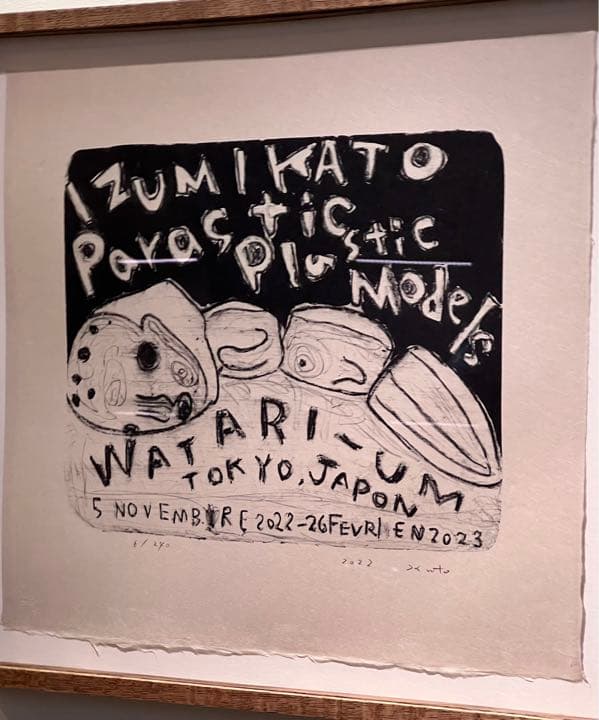 IZUMI KATO
Parastic
Plastic
Models
WATARI-UM
TOKYO, JAPON
5 NOVEMBRE 2022-26 FEVRIEN 2023
6/240
2022 Kato